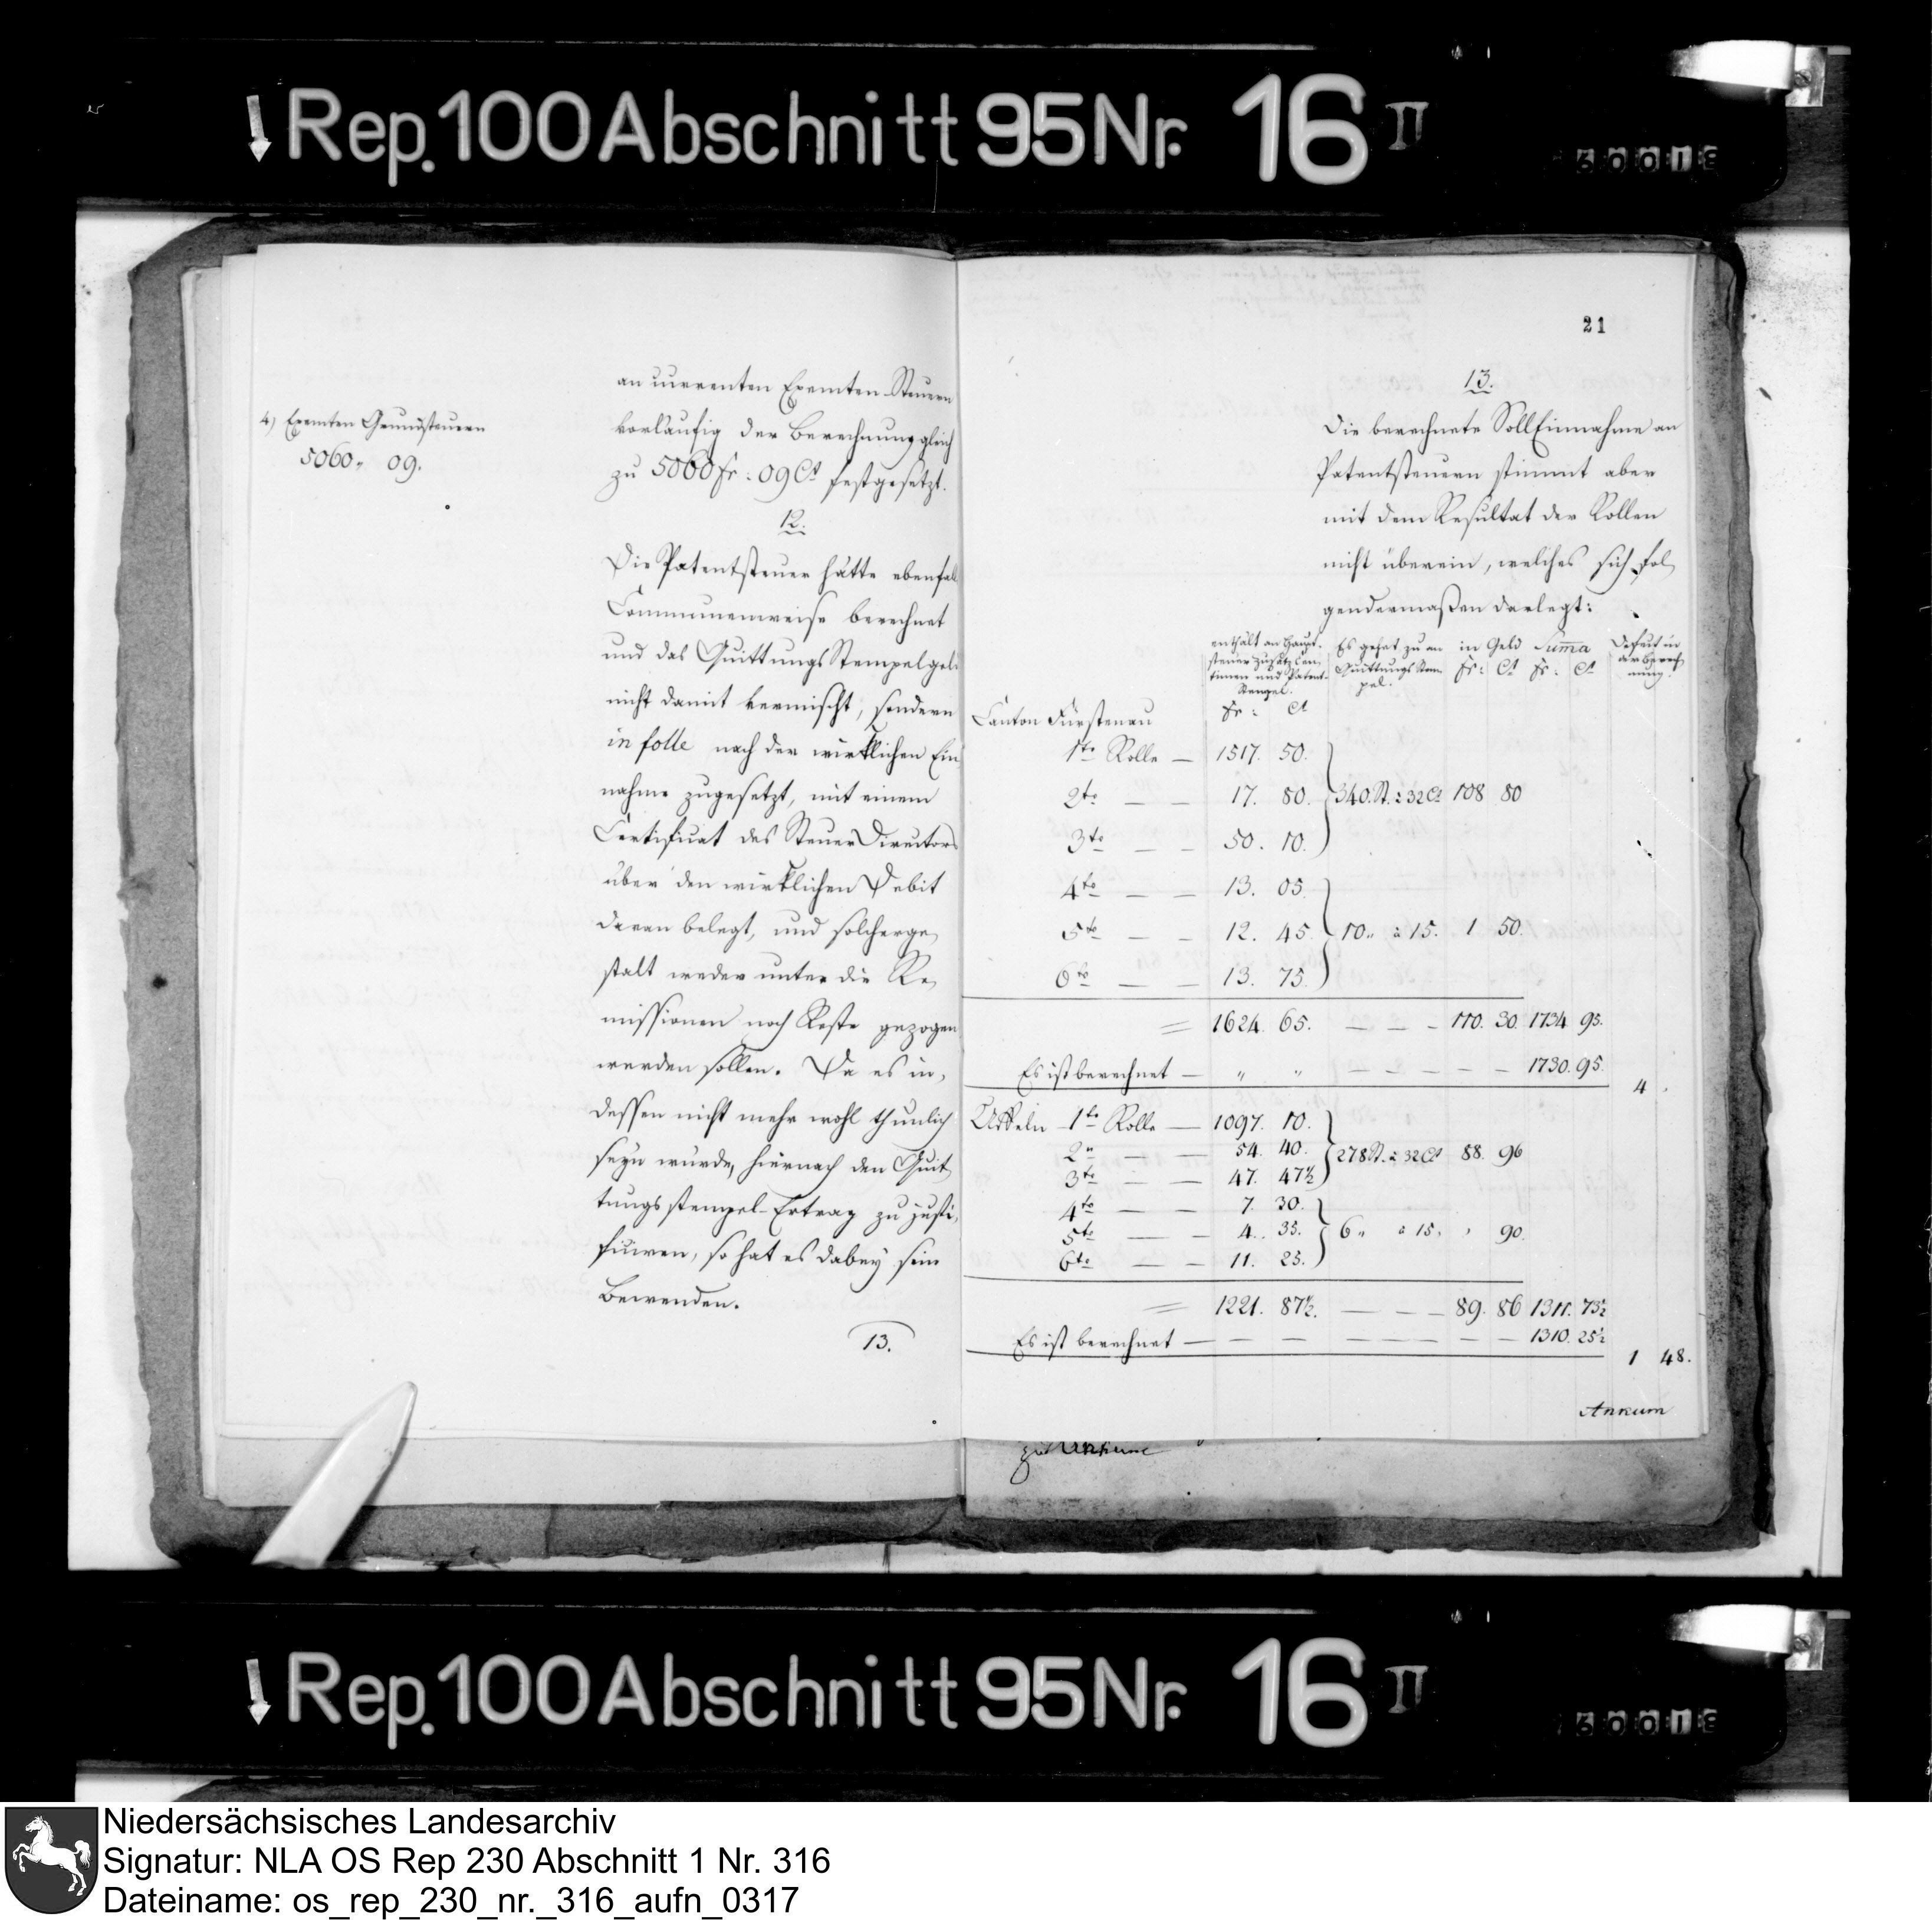 Rep. 100 Abschnitt 95 Nr. 16 II
4) Exemten Grundsteuern
5060„ 09.
an currenten Exemten-Steuern
vorläufig der Berechnung gleich
zu 5060 fr: 09 Ct festgesetzt.
12.
Die Patentsteuer hätte ebenfals
Communenweise berechnet
und das Quittungs Stempelgeld
nicht damit vermischt, sondern
in folle nach der wirklichen Ein
nahme zugesetzt, mit einem
Certificat des Steuer Directors
über den wirklichen Debit
davon belegt, und solcherge„
stalt weder unter die Re„
missionen noch Reste gezogen
werden sollen. Da es in„
dessen nicht mehr wohl thunlich
seyn würde, hiernach den Quit„
tungsstempel-Ertrag zu justi„
ficiren, so hat es dabey sein
Bewenden.
13.
21
13.
Die berechnete Soll Einnahme an
Patentsteuern stimmt aber
mit dem Resultat der Rollen
nicht überein, welches sich fol„
gendermaßen darlegt:
enthält an Haupt-
steuer Zusatz Cen„
timen und Patent-
Stempel.
fr: Ct
Es gehet zu an
Quittungs Stem
pel.
in Geld
fr: Ct
Suma
fr: Ct
Defect in
der Berech
nung.
Canton Fürstenau
1te Rolle — 1517. 50.
2te — — 17. 80. 340. St. à 32 Ct 108 80
3te — — 50. 10.
4te — — 13. 05.
5te — — 12. 45. 10„ à 15. 1 50.
6te — — 13. 75.
= 1624. 65. — — — 110. 30. 1734 95.
Es ist berechnet — „ „ — — — — — 1730. 95.
4
Uffeln 1te Rolle — 1097. 10.
2te — — 54. 40. 278 St. à 32 Ct 88. 96
3te — — 47. 47½
4te — — 7. 30.
5te — — 4. 35. 6„ à 15. „ 90.
6te — — 11. 25.
= 1221. 87½. — — — 89. 86 1311. 73½
Es ist berechnet — — — — — — — — 1310. 25½
1 48.
Ankum
Rep. 100 Abschnitt 95 Nr. 16 II
Niedersächsisches Landesarchiv
Signatur: NLA OS Rep 230 Abschnitt 1 Nr. 316
Dateiname: os_rep_230_nr._316_aufn_0317